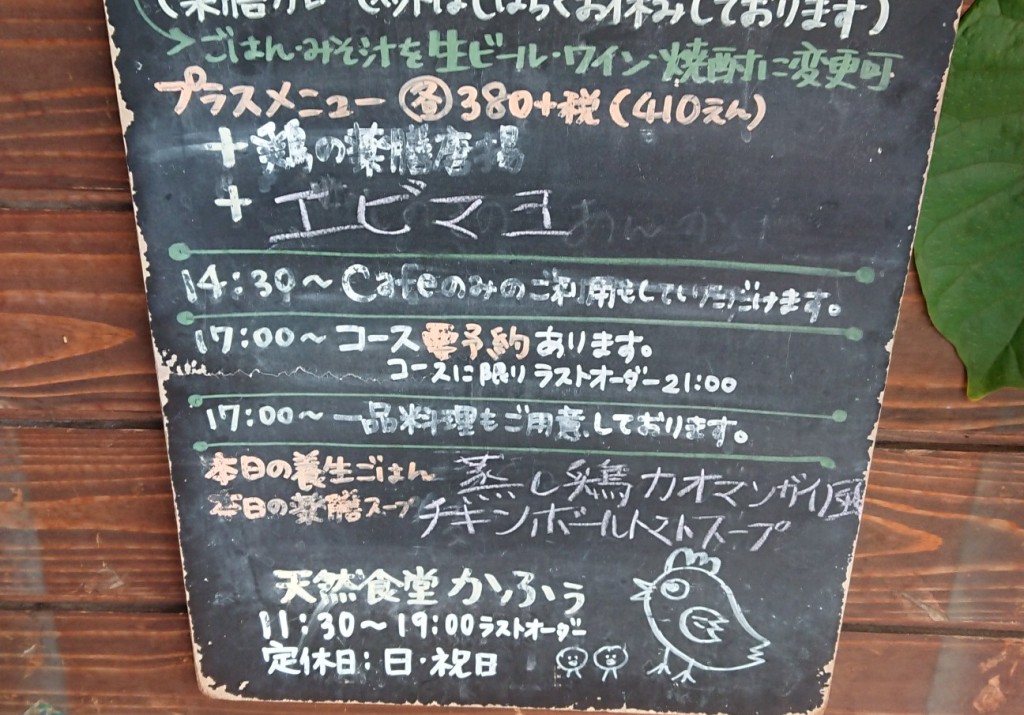 (薬膳カレーセットはしばらくお休みしております)
→ごはん・みそ汁を生ビール・ワイン・焼酎に変更可
プラスメニュー 各380+税(410えん)
+鶏の薬膳唐揚
+エビマヨ
14:30~Cafeのみのご利用もしていただけます。
17:00~コース要予約あります。
コースに限りラストオーダー21:00
17:00~一品料理もご用意しております。
本日の養生ごはん 蒸し鶏カオマンガイ風
本日の薬膳スープ チキンボールトマトスープ
天然食堂かふぅ
11:30~19:00ラストオーダー
定休日:日・祝日